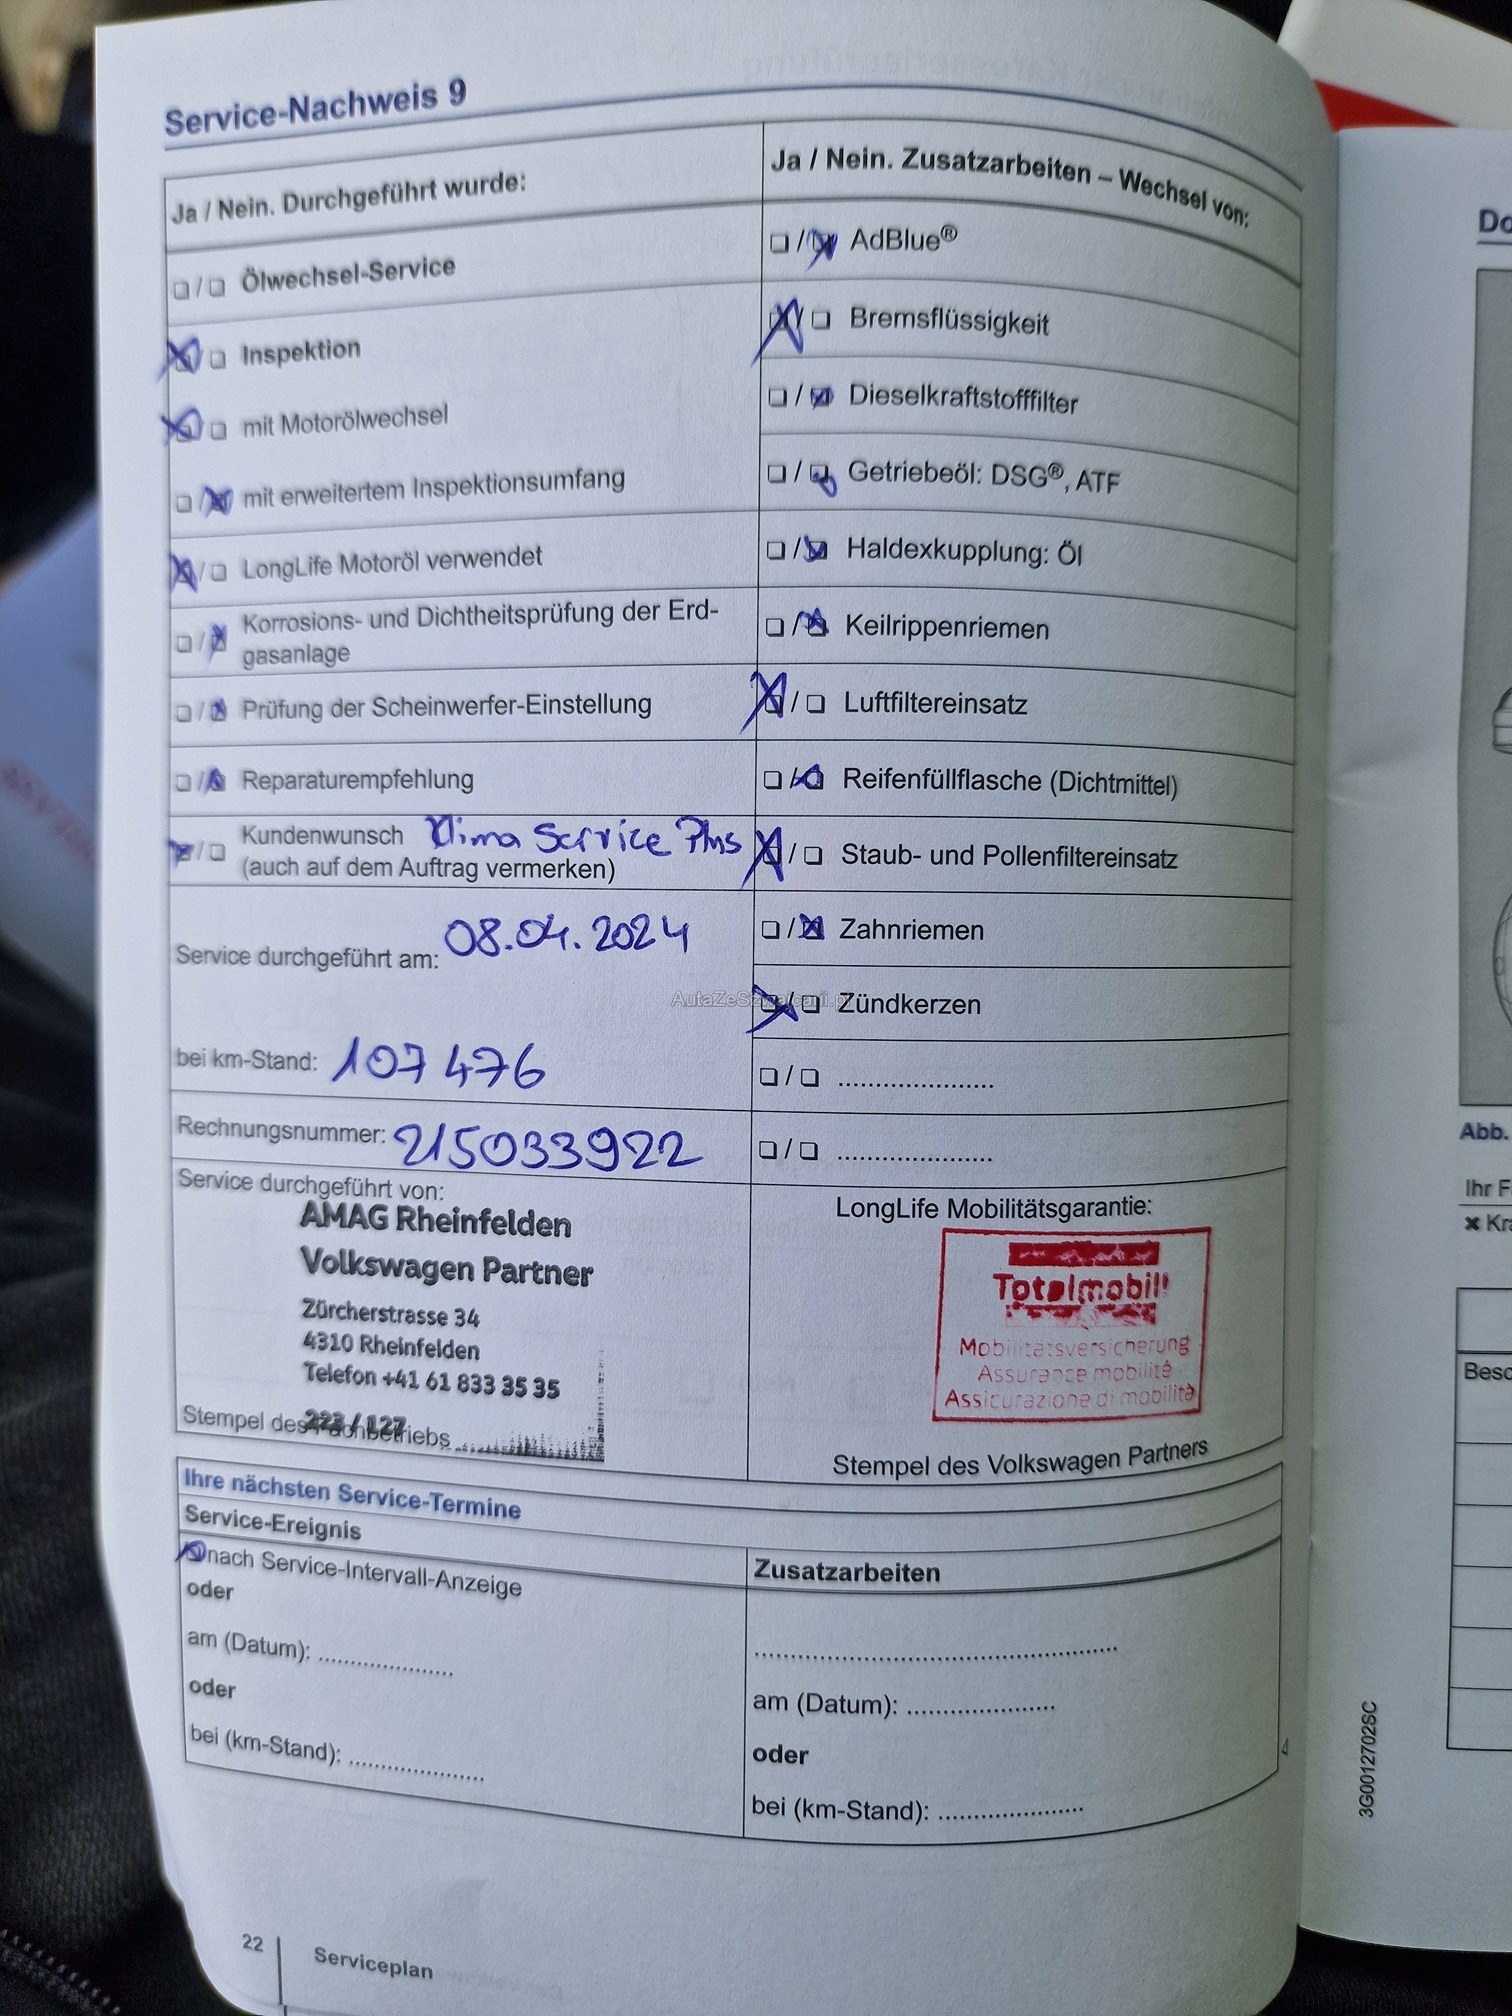 Service-Nachweis 9
Ja / Nein. Durchgeführt wurde:
❏ / ❏ Ölwechsel-Service
☒ / ❏ Inspektion
☒ / ❏ mit Motorölwechsel
❏ / ☒ mit erweitertem Inspektionsumfang
☒ / ❏ LongLife Motoröl verwendet
❏ / ☒ Korrosions- und Dichtheitsprüfung der Erd-
gasanlage
❏ / ☒ Prüfung der Scheinwerfer-Einstellung
❏ / ☒ Reparaturempfehlung
☒ / ❏ Kundenwunsch Klima Service Plus
(auch auf dem Auftrag vermerken)
Service durchgeführt am: 08.04.2024
bei km-Stand: 107 476
Rechnungsnummer: 215033922
Service durchgeführt von:
AMAG Rheinfelden
Volkswagen Partner
Zürcherstrasse 34
4310 Rheinfelden
Telefon +41 61 833 35 35
223 / 127
Stempel des Fachbetriebs
Ja / Nein. Zusatzarbeiten – Wechsel von:
❏ / ☒ AdBlue®
☒ / ❏ Bremsflüssigkeit
❏ / ☒ Dieselkraftstofffilter
❏ / ☒ Getriebeöl: DSG®, ATF
❏ / ☒ Haldexkupplung: Öl
❏ / ☒ Keilrippenriemen
☒ / ❏ Luftfiltereinsatz
❏ / ☒ Reifenfüllflasche (Dichtmittel)
☒ / ❏ Staub- und Pollenfiltereinsatz
❏ / ☒ Zahnriemen
AutaZeSzwajcarii.pl
☒ / ❏ Zündkerzen
❏ / ❏ ......................
❏ / ❏ ......................
LongLife Mobilitätsgarantie:
Totalmobil!
Mobilitätsversicherung
Assurance mobilité
Assicurazione di mobilità
Stempel des Volkswagen Partners
Ihre nächsten Service-Termine
Service-Ereignis
☒ nach Service-Intervall-Anzeige
oder
am (Datum): ...................
oder
bei (km-Stand): ...................
Zusatzarbeiten
..................................................
am (Datum): ....................
oder
bei (km-Stand): ....................
22
Serviceplan
3G0012702SC
Do
Abb.
Ihr F
✖ Kra
Besc